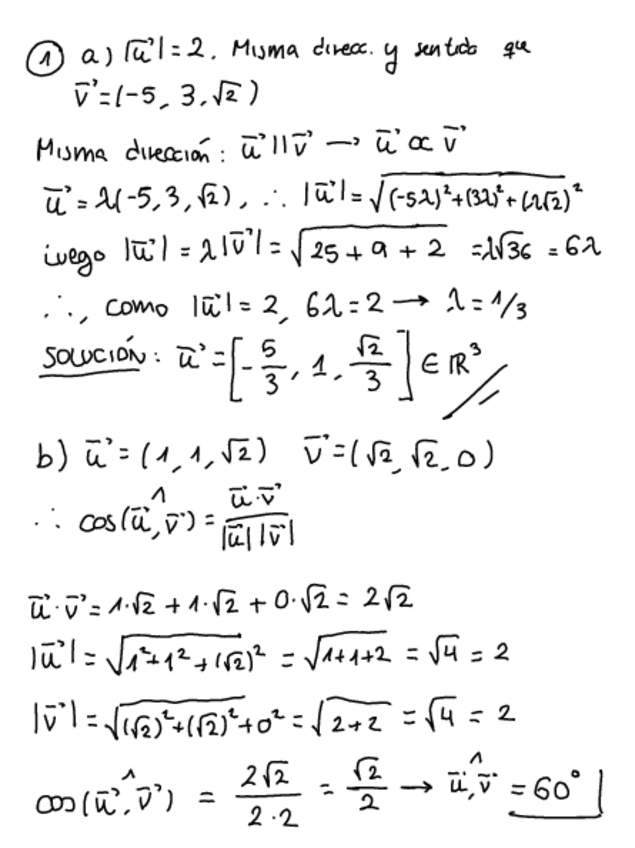 ① a) |u⃗|=2. Misma direcc. y sentido que
v⃗=(-5, 3, √2)
Misma dirección: u⃗ || v⃗ → u⃗ ∝ v⃗
u⃗ = λ(-5, 3, √2), ∴ |u⃗| = √((-5λ)²+(3λ)²+(λ√2)²)
luego |u⃗| = λ|v⃗| = √(25 + 9 + 2) = λ√36 = 6λ
∴, como |u⃗| = 2, 6λ = 2 → λ = 1/3
SOLUCIÓN: u⃗ = [-5/3, 1, √2/3] ∈ ℝ³ //
b) u⃗ = (1, 1, √2) v⃗ = (√2, √2, 0)
∴ cos(u⃗^v⃗) = u⃗·v⃗ / |u⃗| |v⃗|
u⃗·v⃗ = 1·√2 + 1·√2 + 0·√2 = 2√2
|u⃗| = √(1²+1²+(√2)²) = √(1+1+2) = √4 = 2
|v⃗| = √((√2)²+(√2)²+0²) = √(2+2) = √4 = 2
cos(u⃗^v⃗) = 2√2 / 2·2 = √2/2 → u⃗^v⃗ = 60°